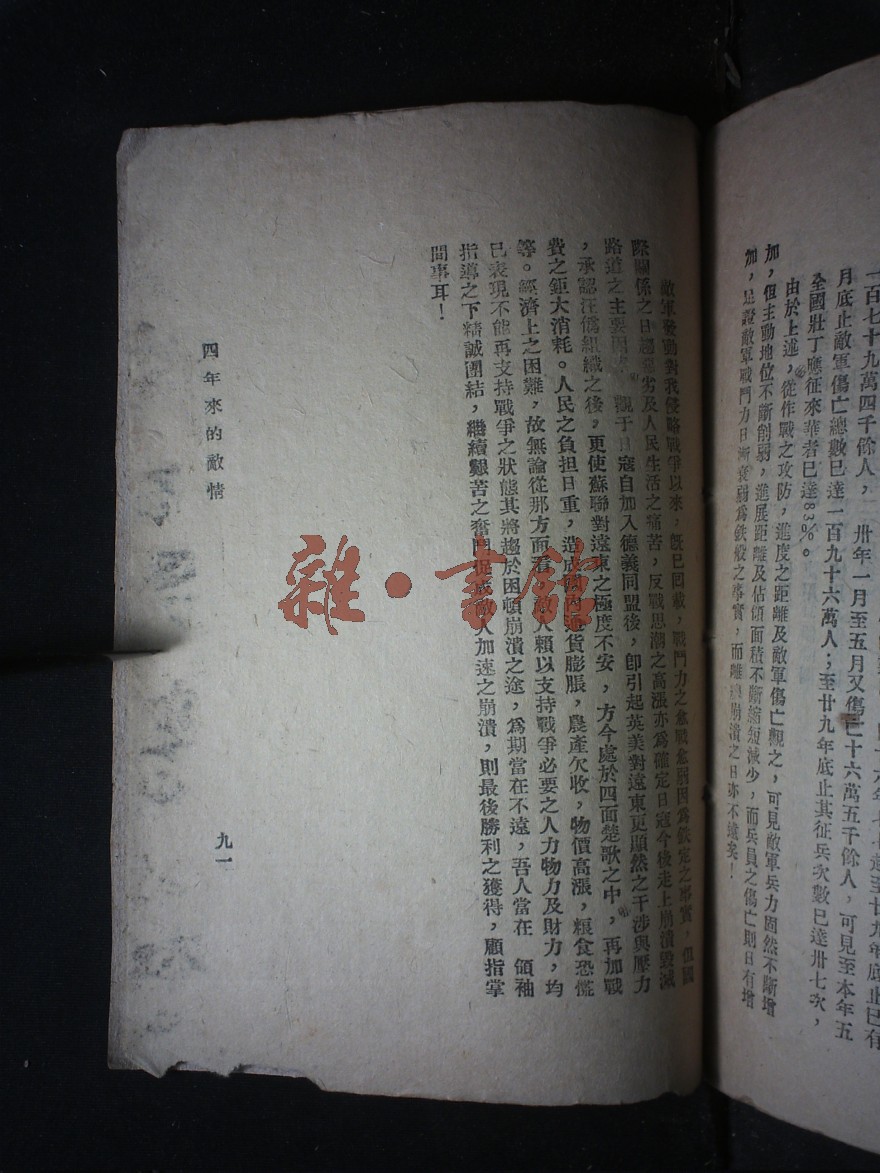 一百七十九萬四千餘人,卅年一月至五月又傷亡十六萬五千餘人,可見至本年五
月底止敵軍傷亡總數已達一百九十六萬人;至廿九年底止其征兵次數已達卅七次,
全國壯丁應征來華者已達83%。
由於上述,從作戰之攻防,進度之距離及敵軍傷亡觀之,可見敵軍兵力固然不斷增
加,但主動地位不斷削弱,進展距離及佔領面積不斷縮短減少,而兵員之傷亡則日有增
加,足證敵軍戰鬥力日漸衰弱爲鉄般之事實,而離崩潰之日亦不遠矣!
敵軍發動對我侵略戰爭以來,旣已四載,戰鬥力之愈戰愈弱固爲鉄定之事實,但國
際關係之日趨惡劣及人民生活之痛苦,反戰思潮之高漲亦爲確定日寇今後走上崩潰毀滅
路道之主要因,觀于日寇自加入德義同盟後,卽引起英美對遠東更顯然之干涉與壓力
,承認汪僞組織之後,更使蘇聯對遠東之極度不安,方今處於四面楚歌之中,再加戰
費之鉅大消耗。人民之負担日重,造成國內通貨膨脹,農產欠收,物價高漲,糧食恐慌
等。經濟上之困難,故無論從那方面看,敵人賴以支持戰爭必要之人力物力及財力,均
已表現不能再支持戰爭之狀態其將趨於困頓崩潰之途,爲期當在不遠,吾人當在 領袖
指導之下精誠團結,繼續艱苦之奮鬥促成敵人加速之崩潰,則最後勝利之獲得,願指掌
間事耳!
四年來的敵情
九一
雜·書館